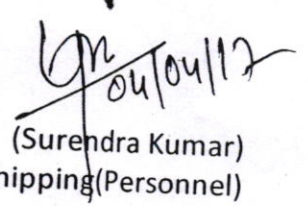 04/04/17
(Surendra Kumar)
hipping(Personnel)